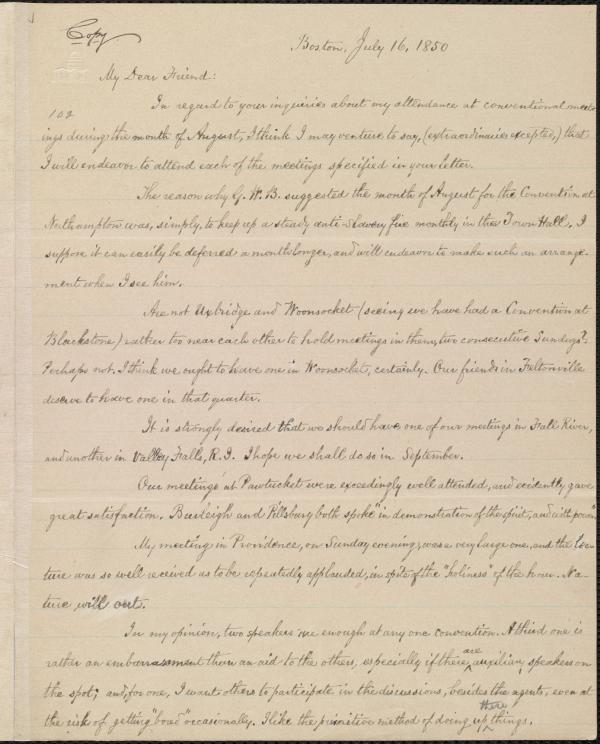 Copy.
Boston, July 16, 1850
My Dear Friend:
In regard to your inquiries about my attendance at conventional meet-
102
ings during the month of August, I think I may venture to say, (extraordinaries excepted,) that
I will endeavor to attend each of the meetings specified in your letter.
The reason why G. W. B. suggested the month of August for the Convention at
Northampton was, simply, to keep up a steady anti-slavery fire monthly in the Town Hall. I
suppose it can easily be deferred a month longer, and will endeavor to make such an arrange-
ment when I see him.
Are not Uxbridge and Woonsocket (seeing we have had a Convention at
Blackstone) rather too near each other to hold meetings in them, two consecutive Sundays?
Perhaps not. I think we ought to have one in Woonsocket, certainly. Our friends in Feltonville
deserve to have one in that quarter.
It is strongly desired that we should have one of our meetings in Fall River,
and another in Valley Falls, R.I. I hope we shall do so in September.
Our meetings at Pawtucket were exceedingly well attended, and evidently gave
great satisfaction. Burleigh and Pillsbury both spoke "in demonstration of the spirit, and with power."
My meeting in Providence, on Sunday evening, was a very large one, and the lec-
ture was so well received as to be repeatedly applauded, in spite of the "holiness" of the hour. Na-
ture will out.
In my opinion, two speakers are enough at any one convention. A third one is
rather an embarrassment than an aid to the others, especially if there are auxiliary speakers on
the spot; and, for one, I want others to participate in the discussions, besides the agents, even at
the risk of getting "bored" occasionally. I like the primitive method of doing up these things.